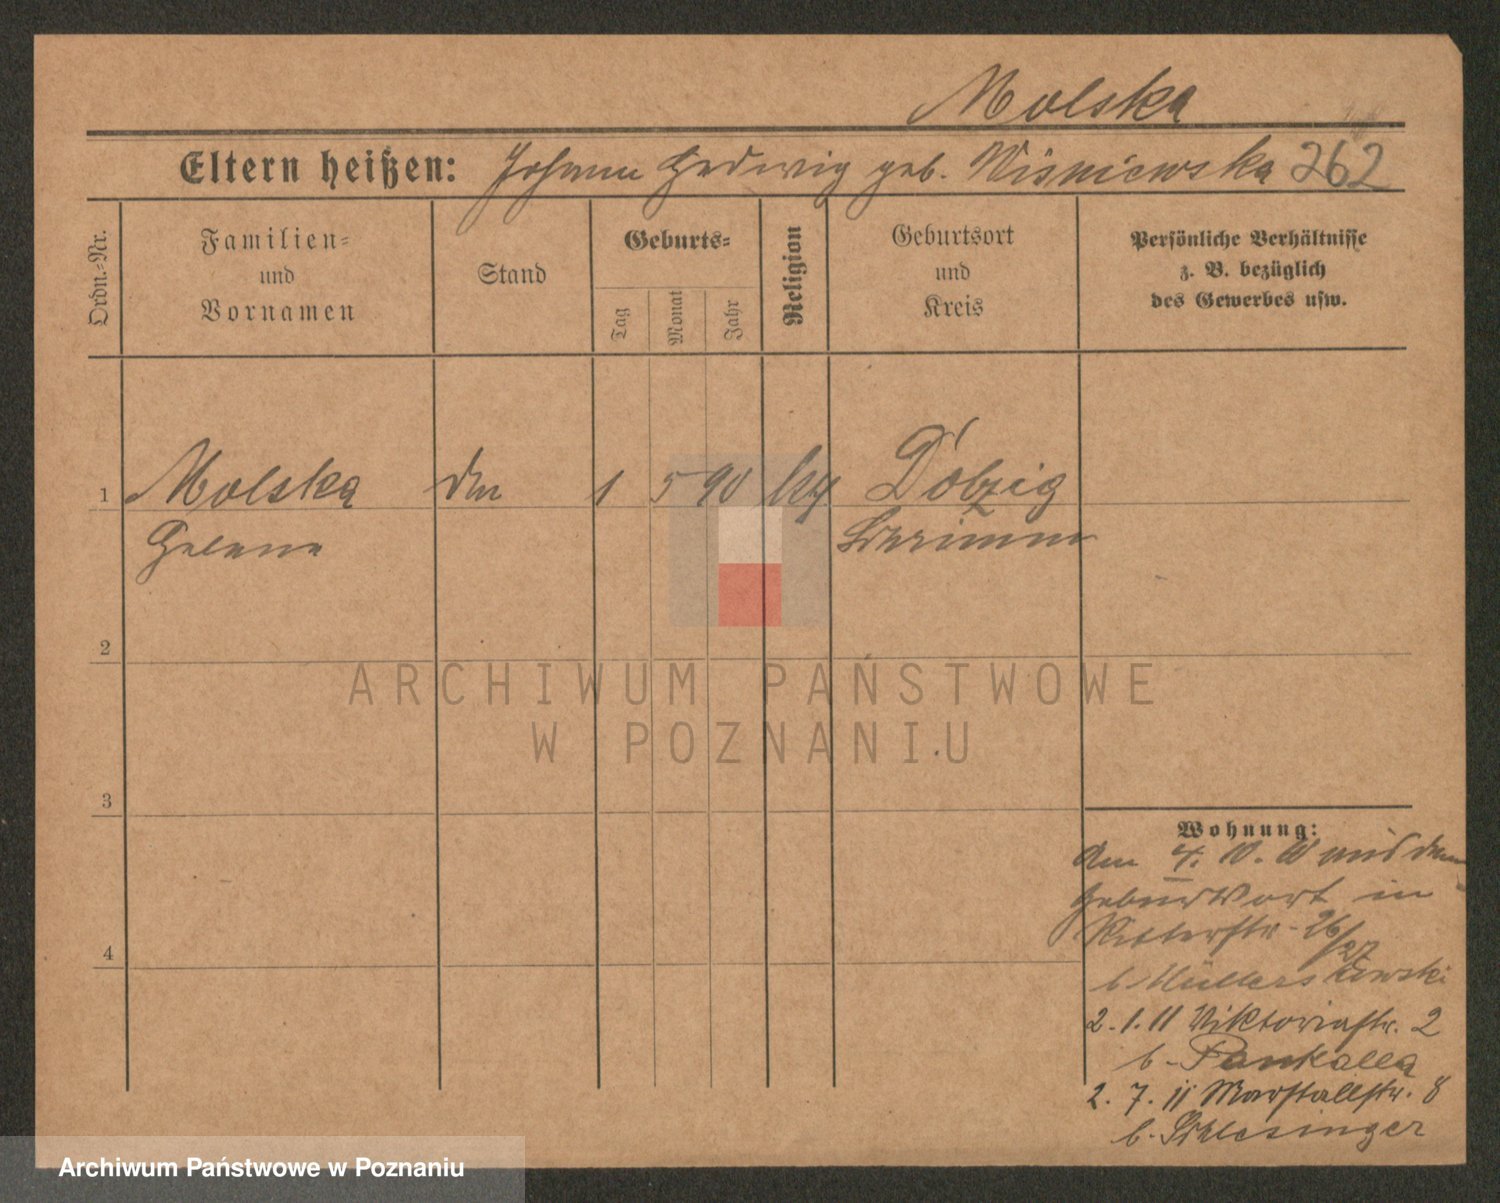 Molska
Eltern heißen: Johann Hedwig geb. Wisniewska 262
Ordn.-Nr.
Familien-
und
Vornamen
Stand
Geburts-
Tag
Monat
Jahr
Religion
Geburtsort
und
Kreis
Persönliche Verhältnisse
z. B. bezüglich
des Gewerbes usw.
1 Molska 1 5 90 Dobzig
Helene Schrimm
2
3
4
Wohnung:
Am 4. 10. 10 aus dem
Geburtsort in
Ritterstr. 26/27
b Müllerskowski
2. 1. 11 Viktoriastr. 2
b. Pankalla
2. 7. 11 Marstallstr. 8
b. Schlesinger
ARCHIWUM PAŃSTWOWE
W POZNANIU
Archiwum Państwowe w Poznaniu